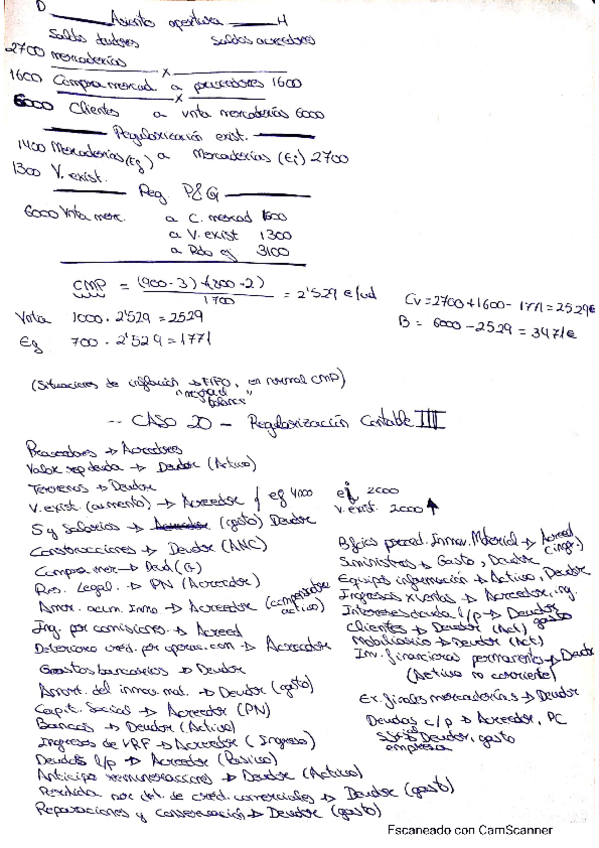 D Asiento apertura H
Saldos deudores Saldos acreedores
2700 mercaderías
x
1600 Compra mercad a proveedores 1600
x
6000 Clientes a vnta mercaderías 6000
Regularización exist.
1400 Mercaderías (Eg) a Mercaderías (Ei) 2700
1300 V. exist.
Reg. P&G
6000 Vnta merc. a C. mercad 1600
a V. exist 1300
a Rdo ej 3100
CMP = (900·3)+(800·2) / 1700 = 2'529 €/ud
Cv = 2700+1600-1771 = 2529€
Vnta 1000·2'529 = 2529
B = 6000-2529 = 3471€
Eg 700·2'529 = 1771
(Situaciones de inflación → FIFO, en normal CMP)
-- CASO 20 - Regularización Contable III
Proveedores → Acreedores
Valor rep deuda → Deudor (Activo)
Terrenos → Deudor
V. exist. (aumento) → Acreedor eg 4000 ei 2000
V. exist. 2000 ↑
S y Salarios → (gasto) Deudor
Construcciones → Deudor (ANC)
Compra mer → Deud (G)
Res. Legal. → PN (Acreedor)
Amor. acum. Inmo → Acreedor (compensador activo)
Ing. por comisiones → Acreed
Deterioro créd. por operac. com → Acreedor
Gastos bancarios → Deudor
Amort. del inmov. mat. → Deudor (gasto)
Capit. Social → Acreedor (PN)
Bancos → Deudor (Activo)
Ingresos de VRF → Acreedor (Ingreso)
Deudas l/p → Acreedor (Pasivo)
Anticipo remuneraciones → Deudor (Activo)
Perdida por det. de créd. comerciales → Deudor (gasto)
Reparaciones y conservación → Deudor (gasto)
Bfcios proced. Inmov. Material → Acreed (ingr.)
Suministros → Gasto, Deudor
Equipos información → Activo, Deudor
Ingresos x Ventas → Acreedor, ing.
Intereses deuda l/p → Deudor gasto
Clientes → Deudor (Act)
Mobiliario → Deudor (Act)
Inv. financieras permanente → Deudor
(Activo no corriente)
Ex. finales mercaderías → Deudor
Deudas c/p → Acreedor, PC
SS empresa → Deudor, gasto
Escaneado con CamScanner